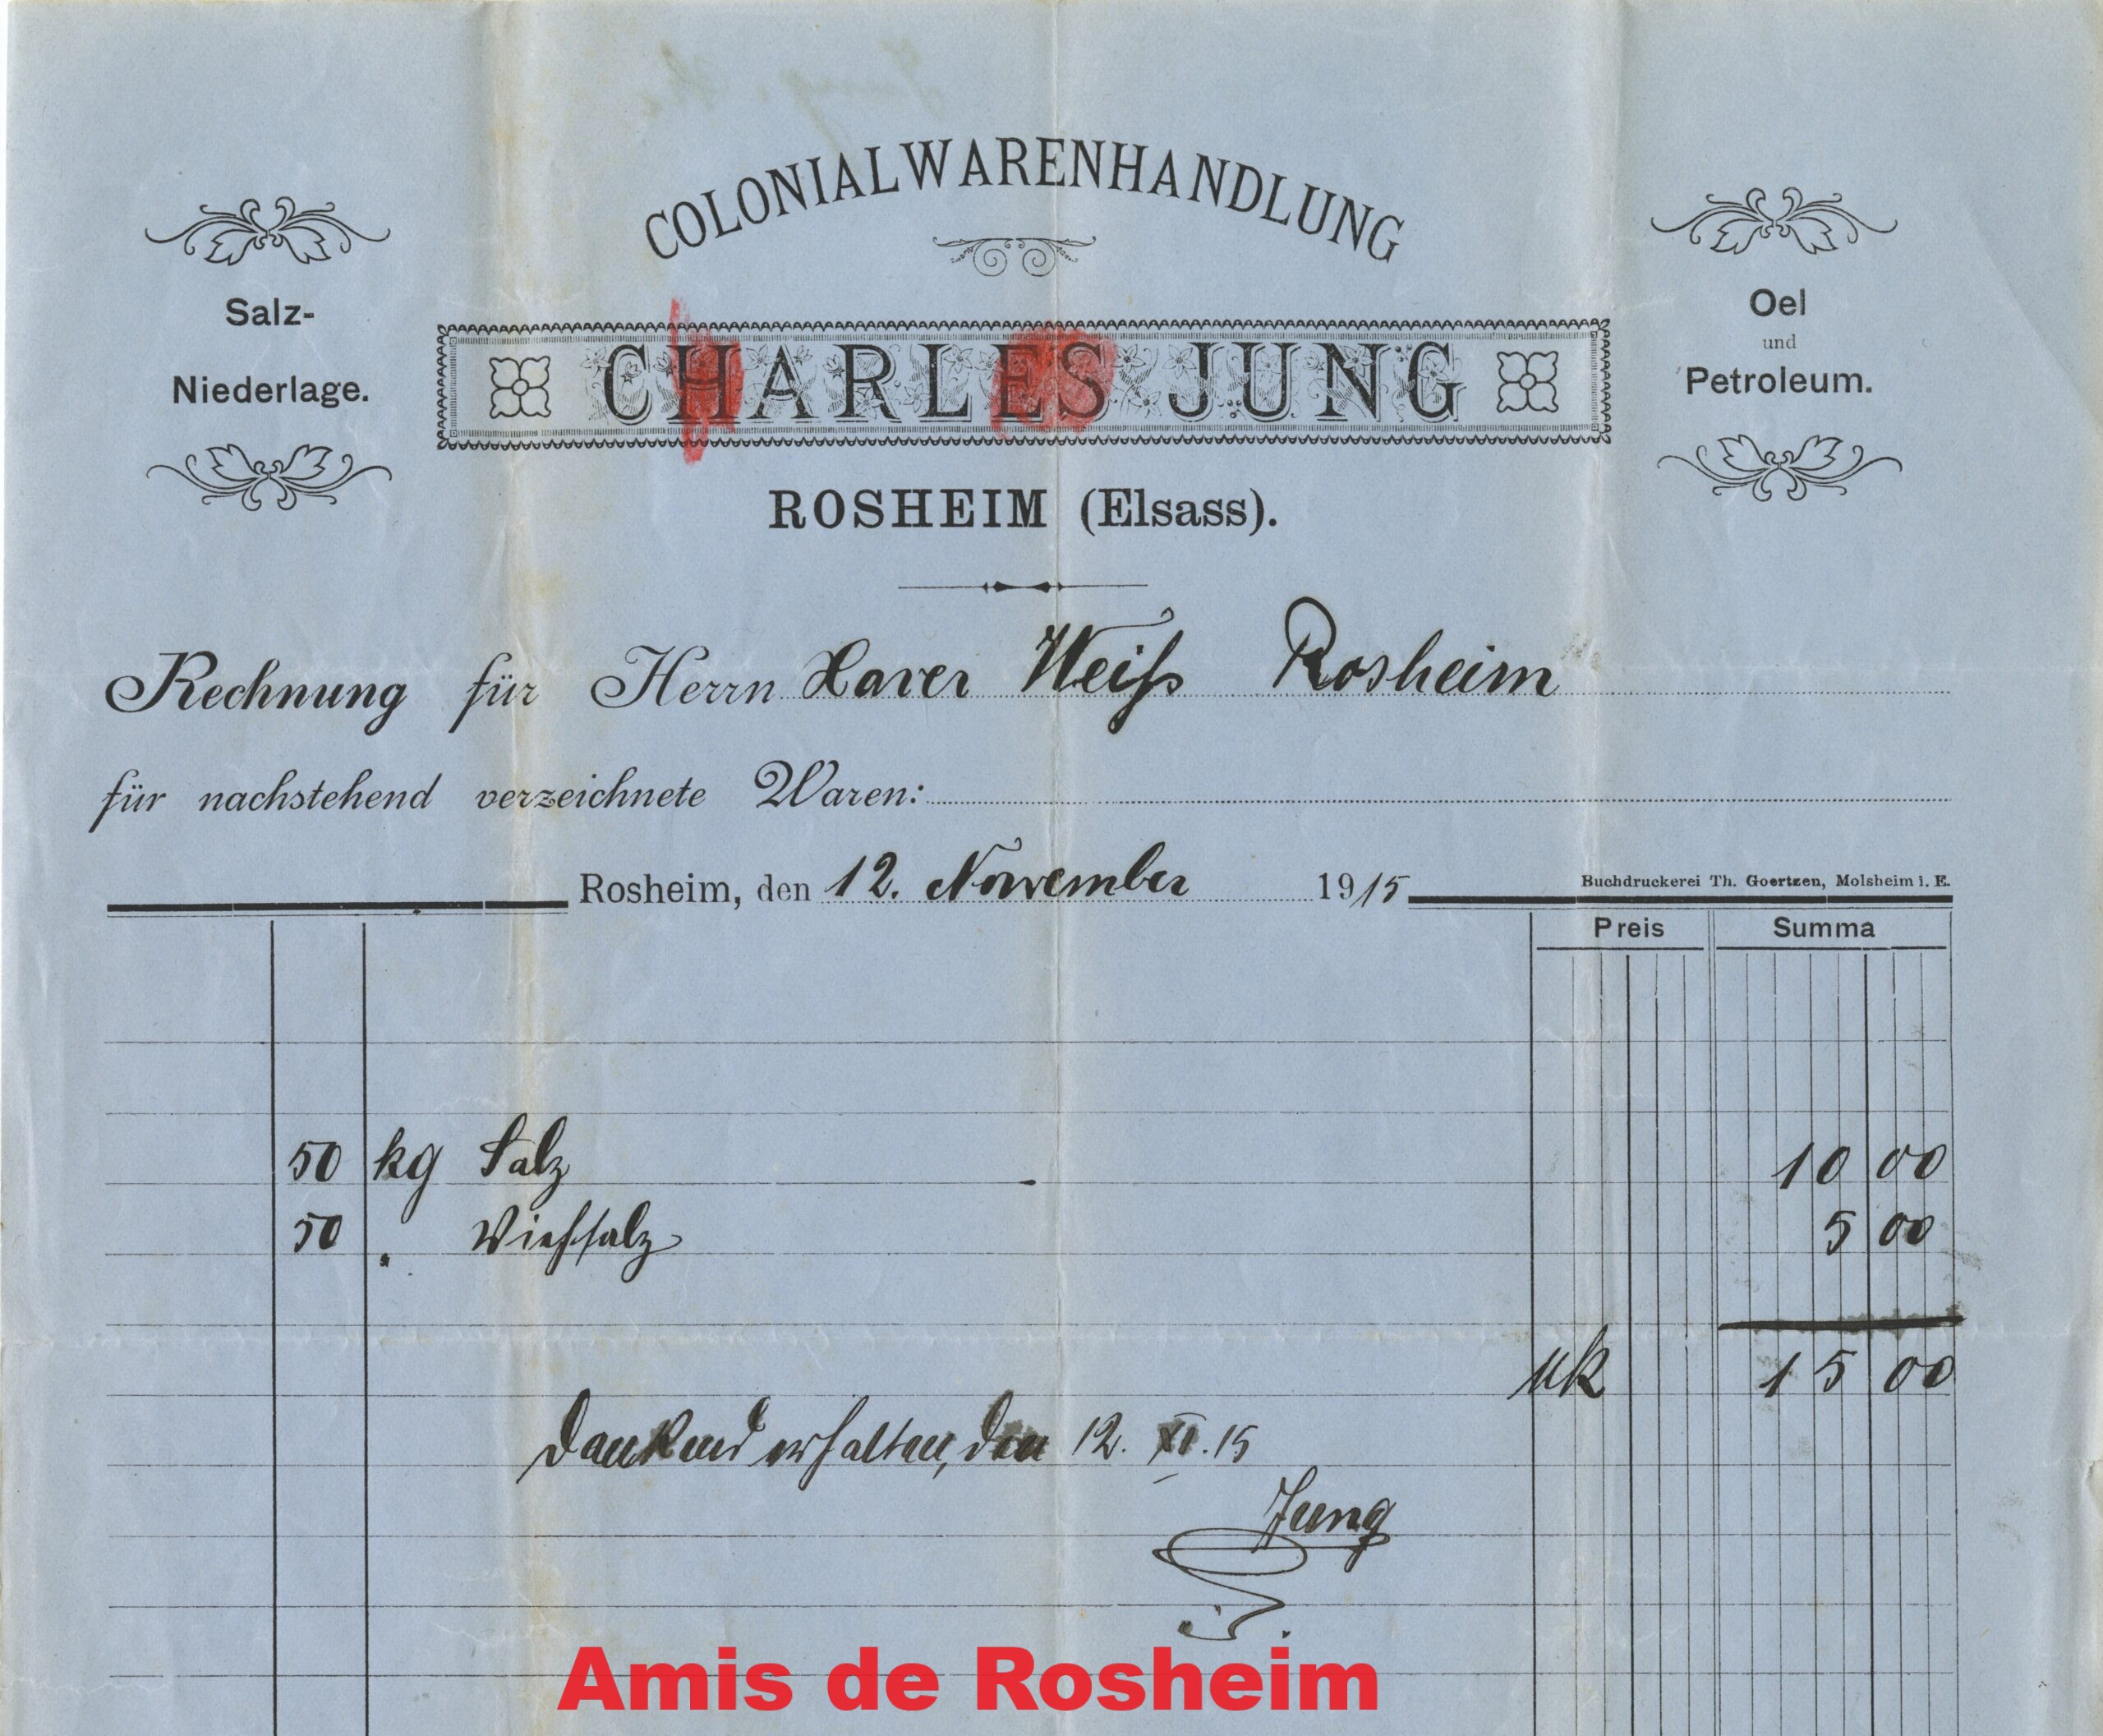 COLONIALWARENHANDLUNG
Salz-
Niederlage.
CHARLES JUNG
Oel
und
Petroleum.
ROSHEIM (Elsass).
Rechnung für Herrn Xaver Weiß Rosheim
für nachstehend verzeichnete Waren:
Rosheim, den 12. November 1915
Buchdruckerei Th. Goertzen, Molsheim i. E.
Preis Summa
50 kg Salz 10 00
50 " Viehsalz 5 00
Mk 15 00
Dankend erhalten, den 12. XI. 15
Jung
Amis de Rosheim